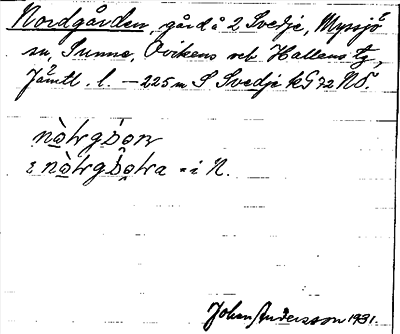 Nordgården, gård å 2 Svedje, Myssjö
sn, Sunne, Ovikens och Hallens tg,
Jämtl. l. — 225 m S Svedje kG 72 NO.
i N.
Johan Andersson 1931.